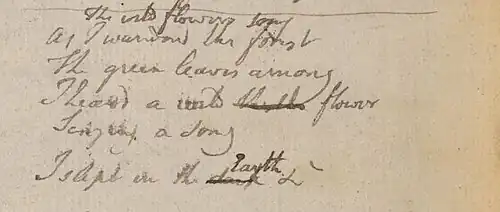 The wild flowers song
As I wanderd the forest
The green leaves among
I heard a wild flower
Singing a song
I slept in the dark Earth &